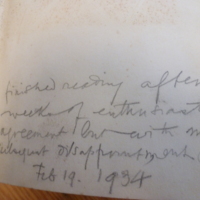 finished reading after
weeks of enthusiastic
agreement but with m
subsequent disappointment
Feb 19. 1934